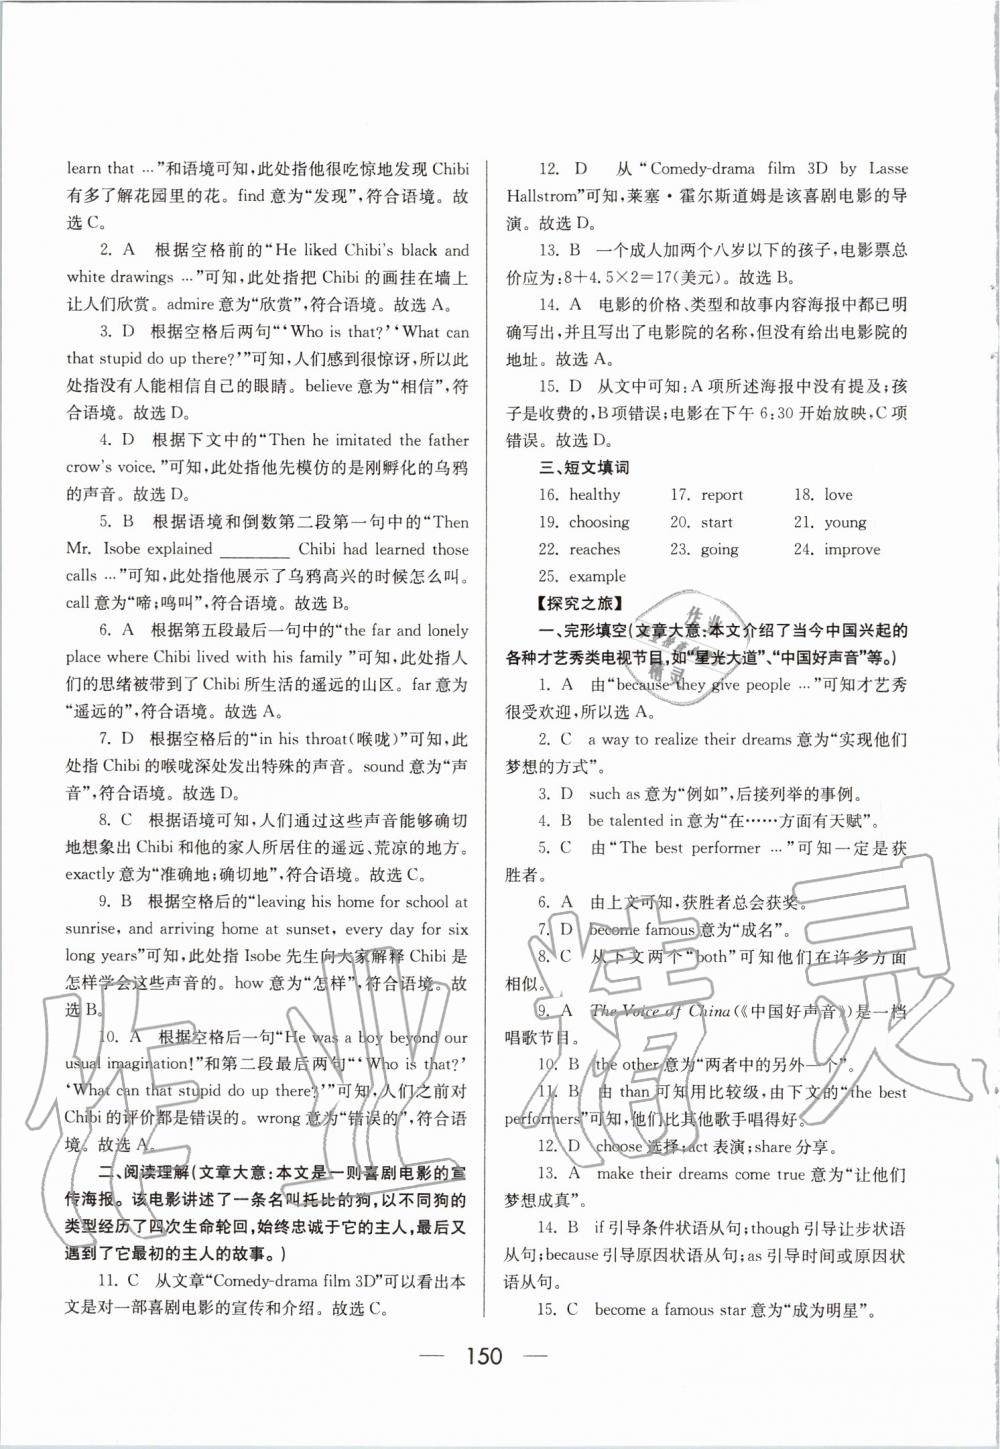 learn that …”和语境可知，此处指他很吃惊地发现 Chibi
有多了解花园里的花。find 意为“发现”，符合语境。故
选 C。
2. A 根据空格前的“He liked Chibi's black and
white drawings …”可知，此处指把 Chibi 的画挂在墙上
让人们欣赏。admire 意为“欣赏”，符合语境。故选 A。
3. D 根据空格后两句“‘Who is that?’‘What can
that stupid do up there?’”可知，人们感到很惊讶，所以此
处指没有人能相信自己的眼睛。believe 意为“相信”，符
合语境。故选 D。
4. D 根据下文中的“Then he imitated the father
crow's voice.”可知，此处指他先模仿的是刚孵化的乌鸦
的声音。故选 D。
5. B 根据语境和倒数第二段第一句中的“Then
Mr. Isobe explained ________ Chibi had learned those
calls …”可知，此处指他展示了乌鸦高兴的时候怎么叫。
call 意为“啼；鸣叫”，符合语境。故选 B。
6. A 根据第五段最后一句中的“the far and lonely
place where Chibi lived with his family ”可知，此处指人
们的思绪被带到了 Chibi 所生活的遥远的山区。far 意为
“遥远的”，符合语境。故选 A。
7. D 根据空格后的“in his throat(喉咙)”可知，此
处指 Chibi 的喉咙深处发出特殊的声音。sound 意为“声
音”，符合语境。故选 D。
8. C 根据语境可知，人们通过这些声音能够确切
地想象出 Chibi 和他的家人所居住的遥远、荒凉的地方。
exactly 意为“准确地；确切地”，符合语境。故选 C。
9. B 根据空格后的“leaving his home for school at
sunrise, and arriving home at sunset, every day for six
long years”可知，此处指 Isobe 先生向大家解释 Chibi 是
怎样学会这些声音的。how 意为“怎样”，符合语境。故
选 B。
10. A 根据空格后一句“He was a boy beyond our
usual imagination!”和第二段最后两句“‘Who is that?’
‘What can that stupid do up there?’”可知，人们之前对
Chibi 的评价都是错误的。wrong 意为“错误的”，符合语
境。故选 A。
二、阅读理解(文章大意：本文是一则喜剧电影的宣
传海报。该电影讲述了一条名叫托比的狗，以不同狗的
类型经历了四次生命轮回，始终忠诚于它的主人，最后又
遇到了它最初的主人的故事。)
11. C 从文章“Comedy-drama film 3D”可以看出本
文是对一部喜剧电影的宣传和介绍。故选 C。
12. D 从“Comedy-drama film 3D by Lasse
Hallstrom”可知，莱塞·霍尔斯道姆是该喜剧电影的导
演。故选 D。
13. B 一个成人加两个八岁以下的孩子，电影票总
价应为：8＋4.5×2＝17(美元)。故选 B。
14. A 电影的价格、类型和故事内容海报中都已明
确写出，并且写出了电影院的名称，但没有给出电影院的
地址。故选 A。
15. D 从文中可知：A 项所述海报中没有提及；孩
子是收费的，B 项错误；电影在下午 6：30 开始放映，C 项
错误。故选 D。
三、短文填词
16. healthy 17. report 18. love
19. choosing 20. start 21. young
22. reaches 23. going 24. improve
25. example
【探究之旅】
一、完形填空(文章大意：本文介绍了当今中国兴起的
各种才艺秀类电视节目，如“星光大道”、“中国好声音”等。)
1. A 由“because they give people …”可知才艺秀
很受欢迎，所以选 A。
2. C a way to realize their dreams 意为“实现他们
梦想的方式”。
3. D such as 意为“例如”，后接列举的事例。
4. B be talented in 意为“在……方面有天赋”。
5. C 由“The best performer …”可知一定是获
胜者。
6. A 由上文可知，获胜者总会获奖。
7. D become famous 意为“成名”。
8. C 从下文两个“both”可知他们在许多方面
相似。
9. A The Voice of China(《中国好声音》)是一档
唱歌节目。
10. B the other 意为“两者中的另外一个”。
11. B 由 than 可知用比较级，由下文的“the best
performers”可知，他们比其他歌手唱得好。
12. D choose 选择；act 表演；share 分享。
13. A make their dreams come true 意为“让他们
梦想成真”。
14. B if 引导条件状语从句；though 引导让步状语
从句；because 引导原因状语从句；as 引导时间或原因状
语从句。
15. C become a famous star 意为“成为明星”。
— 150 —
作业精灵